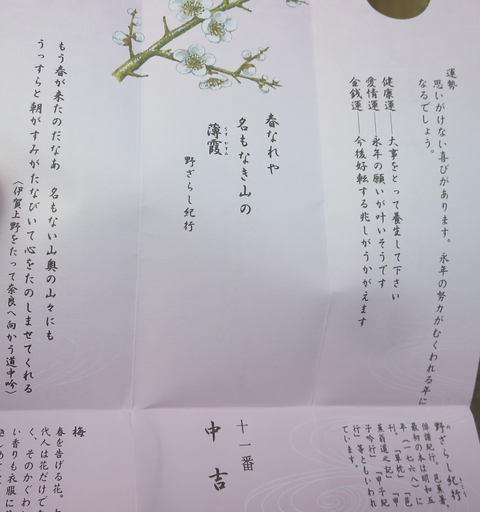 運勢
思いがけない喜びがあります。永年の努力がむくわれる年に
なるでしょう。
健康運――大事をとって養生して下さい
愛情運――永年の願いが叶いそうです
金銭運――今後好転する兆しがうかがえます
春なれや
名もなき山の
薄霞
うすがすみ
野ざらし紀行
もう春が来たのだなあ 名もない山奥の山々にも
うっすらと朝がすみがたなびいて心をたのしませてくれる
(伊賀上野をたって奈良へ向かう道中吟)
野ざらし紀行
俳諧紀行。芭蕉著。
最初の本は明和五
年(一七六八)に
刊。「草枕」「芭
蕉翁道之記」「甲
子吟行」「甲子紀
行」等ともいわれ
ています。
十一番
中吉
梅
春を告げる花。
代人は花だけで
く、そのかぐわ
い香りも衣服に